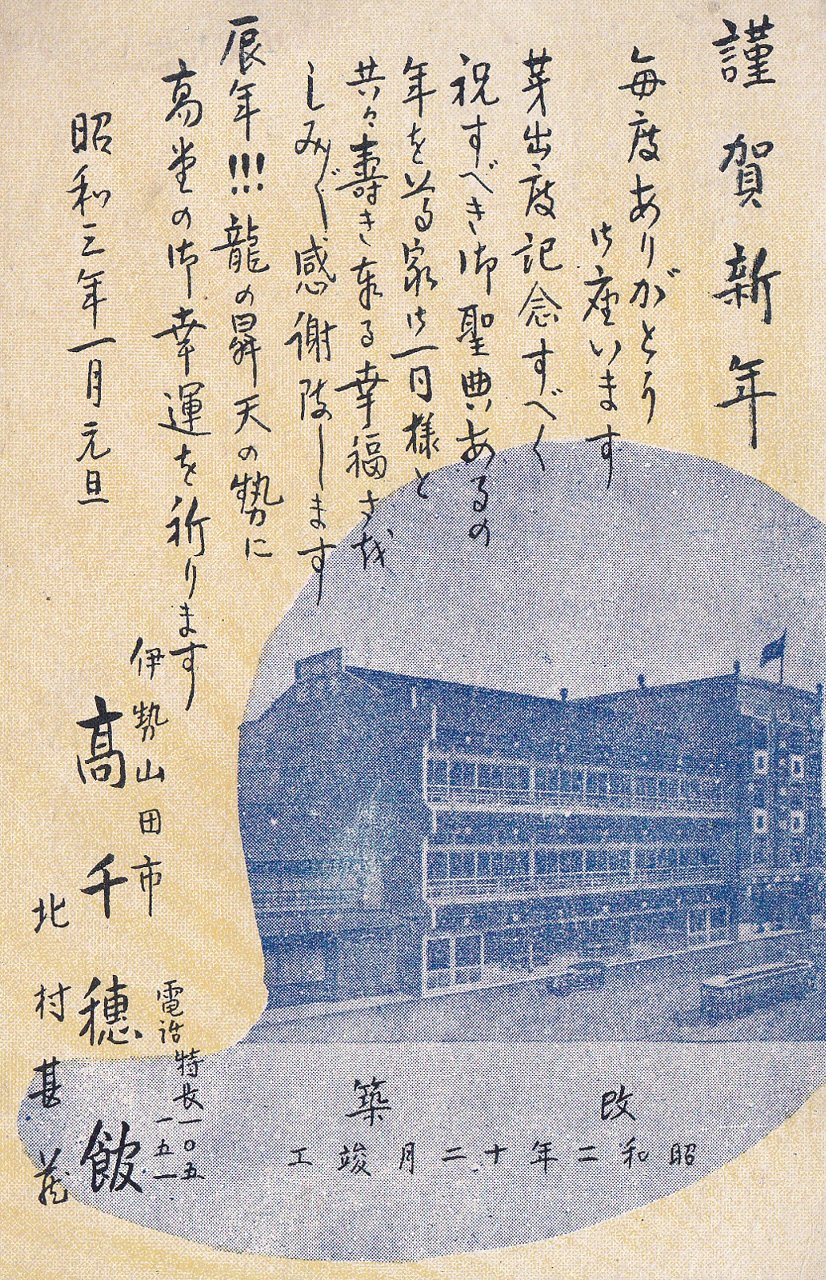 謹賀新年
毎度ありがとう
御座います
芽出度記念すべく
祝すべき御聖典あるの
年を当家は一同様と
共々壽き奉る幸福さを
しみ〴〵感謝致します
辰年!!!龍の昇天の勢に
高堂の御幸運を祈ります
昭和三年一月元旦
伊勢山田市
高千穂館
北村甚蔵
電話特長一〇五
一五一
改築
昭和二年十二月竣工